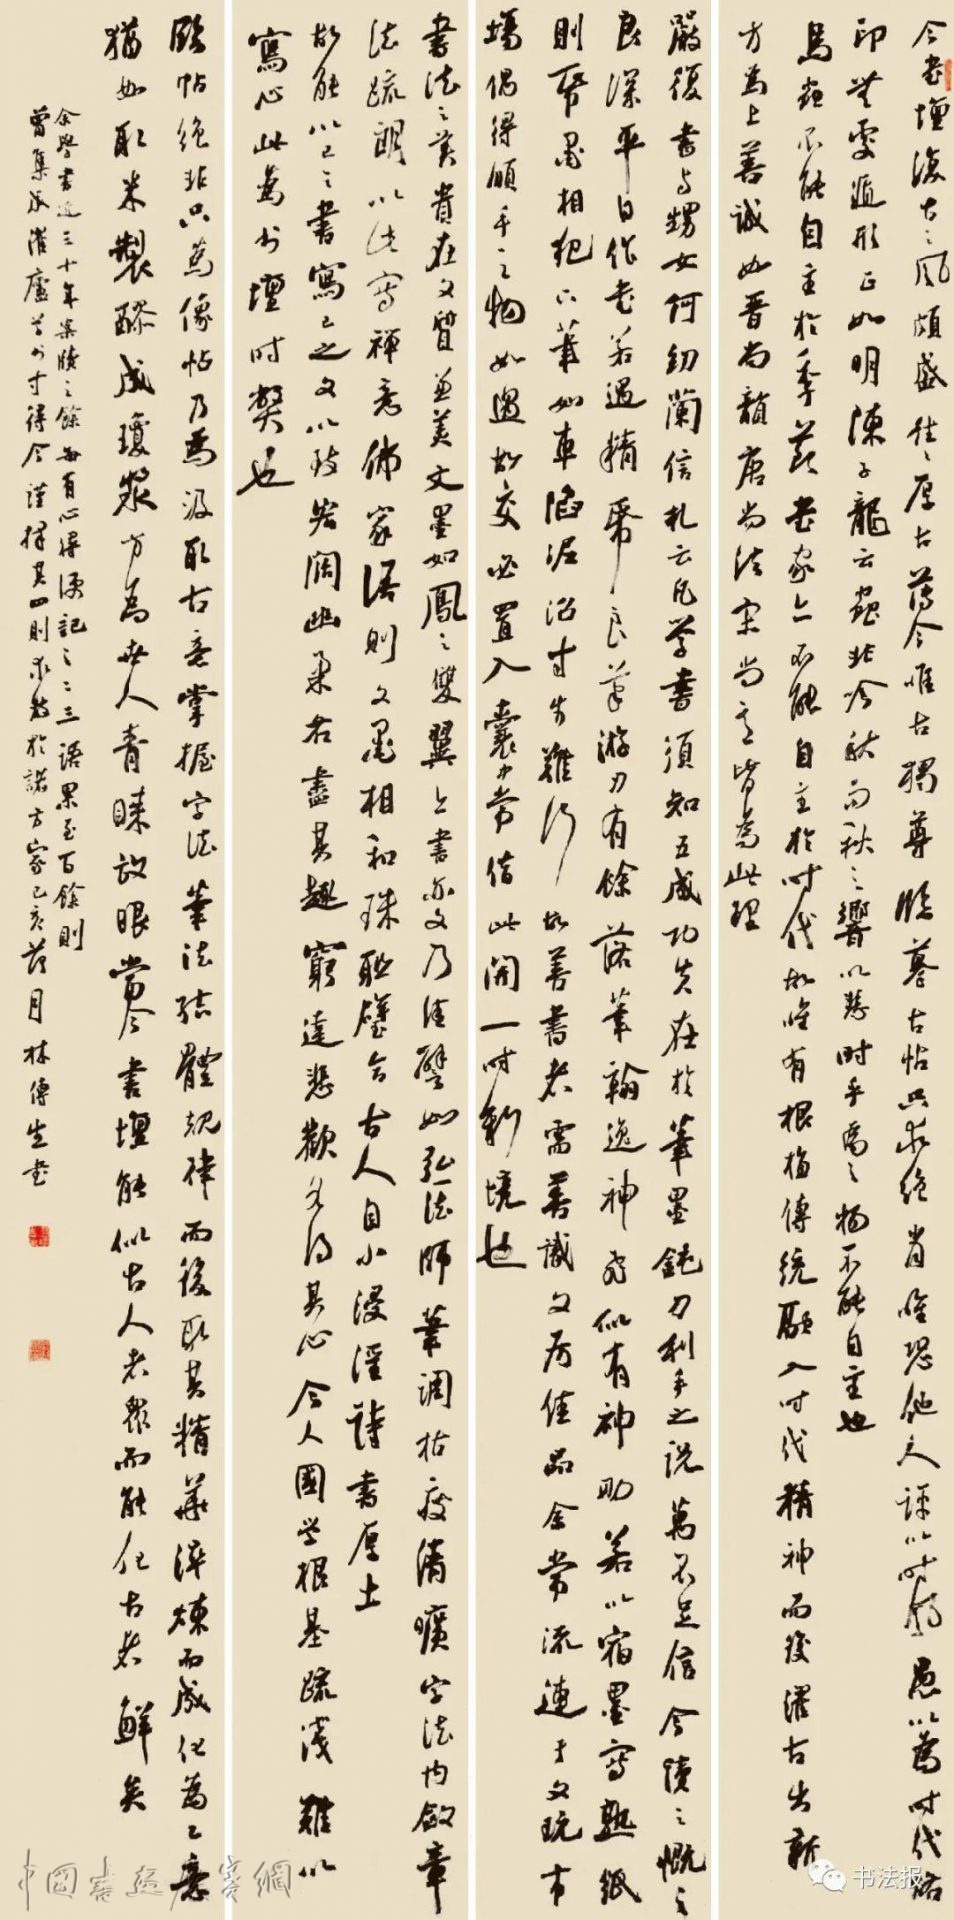 今書壇復古之風頗盛往往厚古薄今唯古獨尊臨摹古帖只求絕肖唯恐他人評以時風愚以為時代烙
印無處遁形正如明陳子龍云蟲非吟秋而秋之響以愁時乎為之物不能自主也
鳥蟲不能自主於季節書家亦不能自主於時代故唯有根植傳統融入時代精神而後濯古出新
方為上善誠如晉尚韻唐尚法宋尚意皆為此理
嚴復書与甥女何紉蘭信札云凡学書須知五成功夫在於筆墨鈍刀利手之说萬不足信今讀之慨之
良深平日作書若遇精紙良筆游刃有餘落筆翰逸神飛似有神助若以宿墨寫熟紙
則紙墨相犯下筆如車陷泥沼寸步難行故善書者需善識文房佳品余常流連于文玩市
場偶得順手之物如遇故交必置入囊中常借此開一时新境也
書法之美貴在文質兼美文墨如鳳之雙翼亦書亦文乃佳譬如弘一法師筆調枯瘦清曠字法内斂章
法疏朗以此寫禪意佛家语則文墨相和珠聯璧合古人自小浸淫詩書厚土
故能以己之書寫己之文以致宏阔幽柔者盡其趣窮達悲歡各得其心今人國学根基疏淺難以
寫心此為書壇时弊也
臨帖絕非只為像帖乃為汲取古意掌握字法筆法結體規律而後取其精華淬煉而成化為己意
猶如取米製醪成瓊漿方為世人青睞放眼當今書壇能似古人者眾而能化古者鮮矣
余學書近三十年案牘之餘每有心得便記之二三语累至百餘則
曾集成淮廬書外寸得今謹擇其四則求教於諸方家己亥荷月林傳生書
中國書画展賽網
书法报